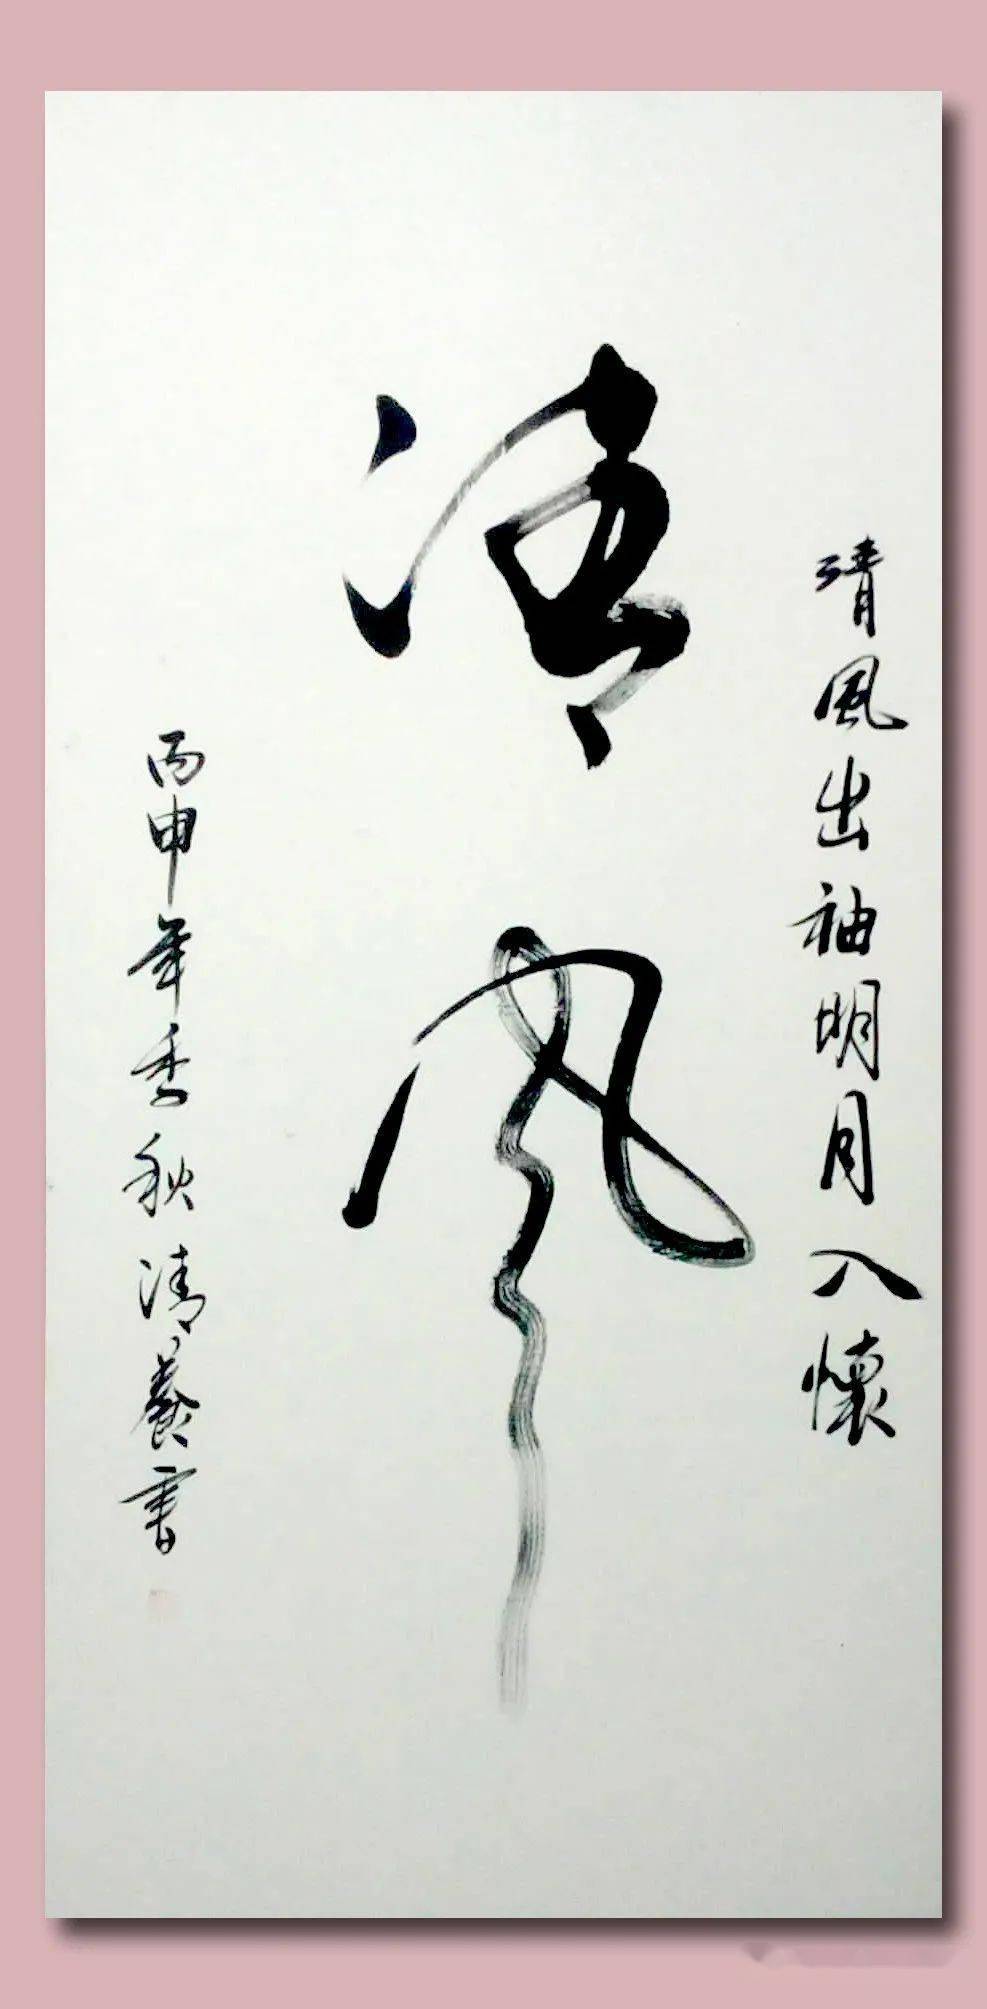 清風出袖明月入懷
清风
丙申年季秋清養書